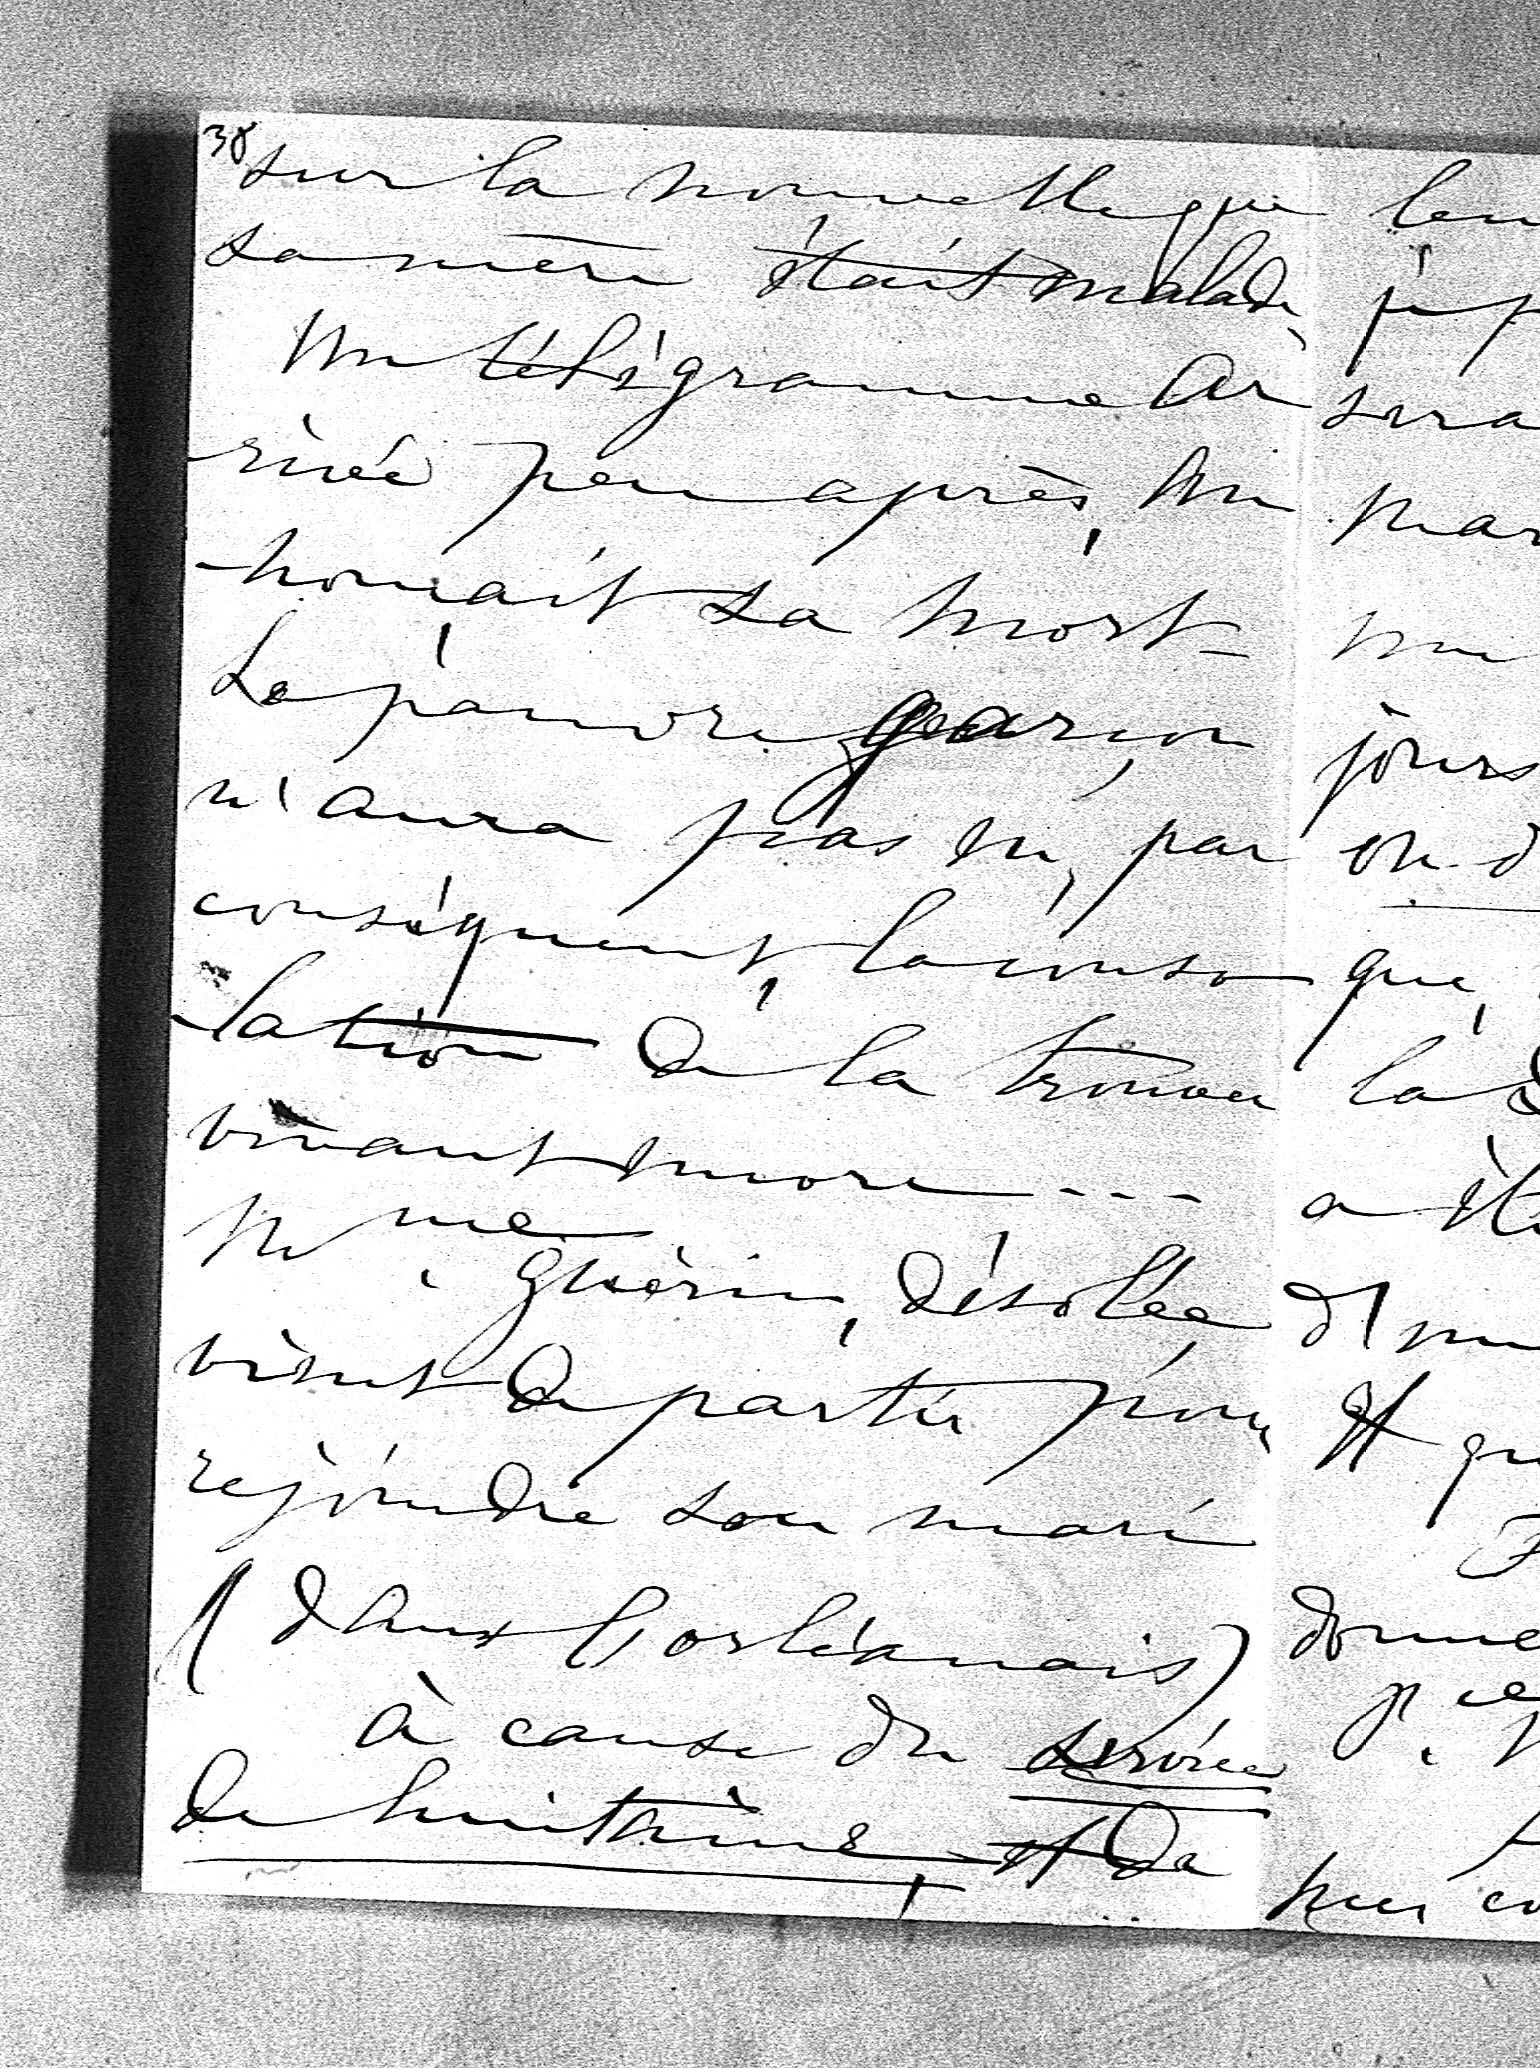 38
sur la nouvelle que
sa mère était malade,
Un télégramme ar
-rivé peu après, an
-nonçait sa mort –
Le pauvre garçon
n'aura pas eu, par
conséquent, la conso
-lation de la trouver
vivant encore - - -
Mme Guérin, désolée,
vient de partir pour
rejoindre son mari
(dans l'orléanais)
à cause du service
de huitaine, et de
jours
que,
la
a
donne